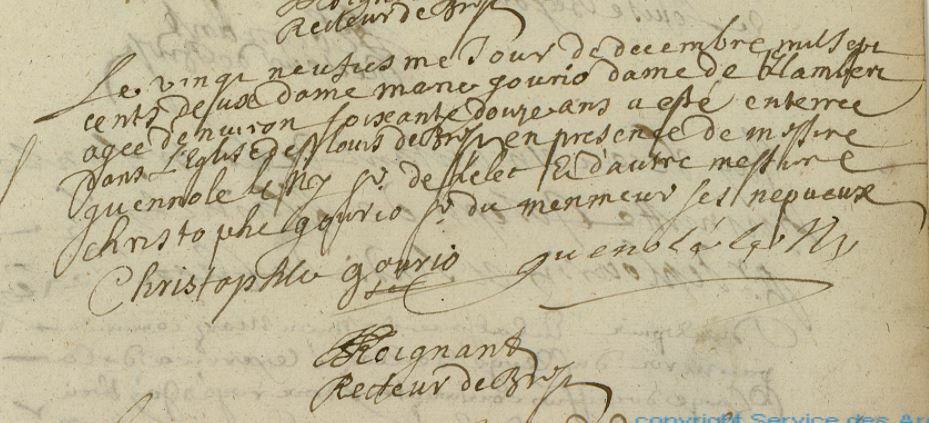 Recteur de Brest
Le vingt neufiesme Jour de decembre mil sept
cents deux dame marie gourio dame de
agee denviron soixante douze ans a esté enterree
dans L'Eglise de St louis de Brest en presence de messire
guennole le Ny sr de Et d'autre messire
christophe gourio sr du menmeur ses nepueux
Christophle gourio guenolé le Ny
Roignant
Recteur de Brest
copyright Service des Ar